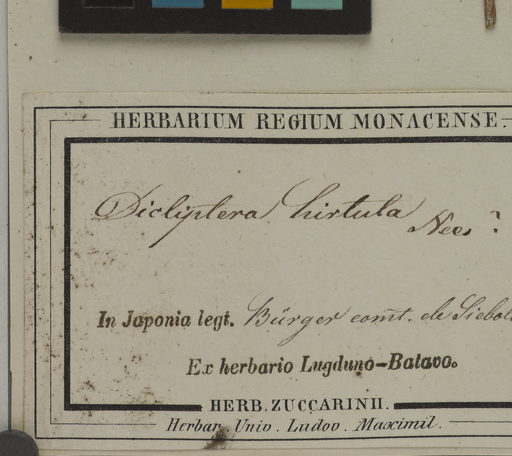 HERBARIUM REGIUM MONACENSE.
Dicliptera hirtula Nees?
In Japonia legt. Bürger comt. de Siebol
Ex herbario Lugduno-Batavo.
HERB. ZUCCARINII.
Herbar. Univ. Ludov. Maximil.